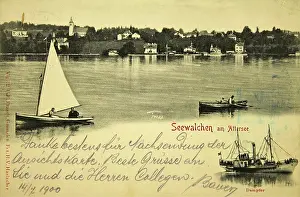 Seewalchen am Attersee
Danke bestens für Nachsendung der
Ansichtskarte, beste Grüsse an
Sie und die Herren Collegen.
14/7 1900 Bauer
Dampfer